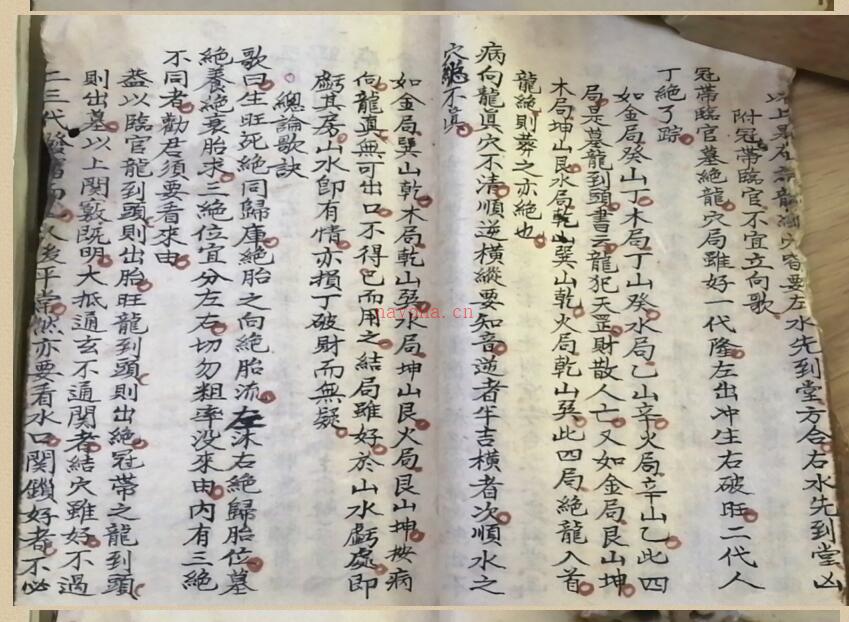 水先到堂方合右水先到堂凶
附冠帶臨官不宜立向歌
冠帶臨官墓絕龍穴局雖好一代隆左出冲生右破旺二代人
丁絕了踪
如金局癸山丁木局丁山癸水局乙山辛火局辛山乙此四
局是墓龍到頭書云龍犯天罡財散人亡又如金局艮山坤
木局坤山艮水局乾山巽山乾火局乾山巽此四局絕龍入首
龍絕則葬之亦絕也
病向龍眞穴不清順逆橫縱要知音逆者半吉橫者次順水之
穴總不眞
如金局巽山乾木局乾山巽水局坤山艮火局艮山坤按病
向龍眞無可出口不得已而用之結局雖好於山水虧處即
虧其房山水卽有情亦損丁破財而無疑
總論歌訣
歌曰生旺死絕同歸庫絕胎之向絕胎流左沐右絕歸胎位墓
絕養絕衰胎求三絕位宜分左右切勿粗率沒來由內有三絕
不同者勸君須要看來由
葢以臨官龍到頭則出胎旺龍到頭則出絕冠帶之龍到頭
則出墓以上関竅既明大抵通玄不通関者結穴雖好不過
二三代發富而後平常然亦要看水口関鎖好者不必
nayona.cn